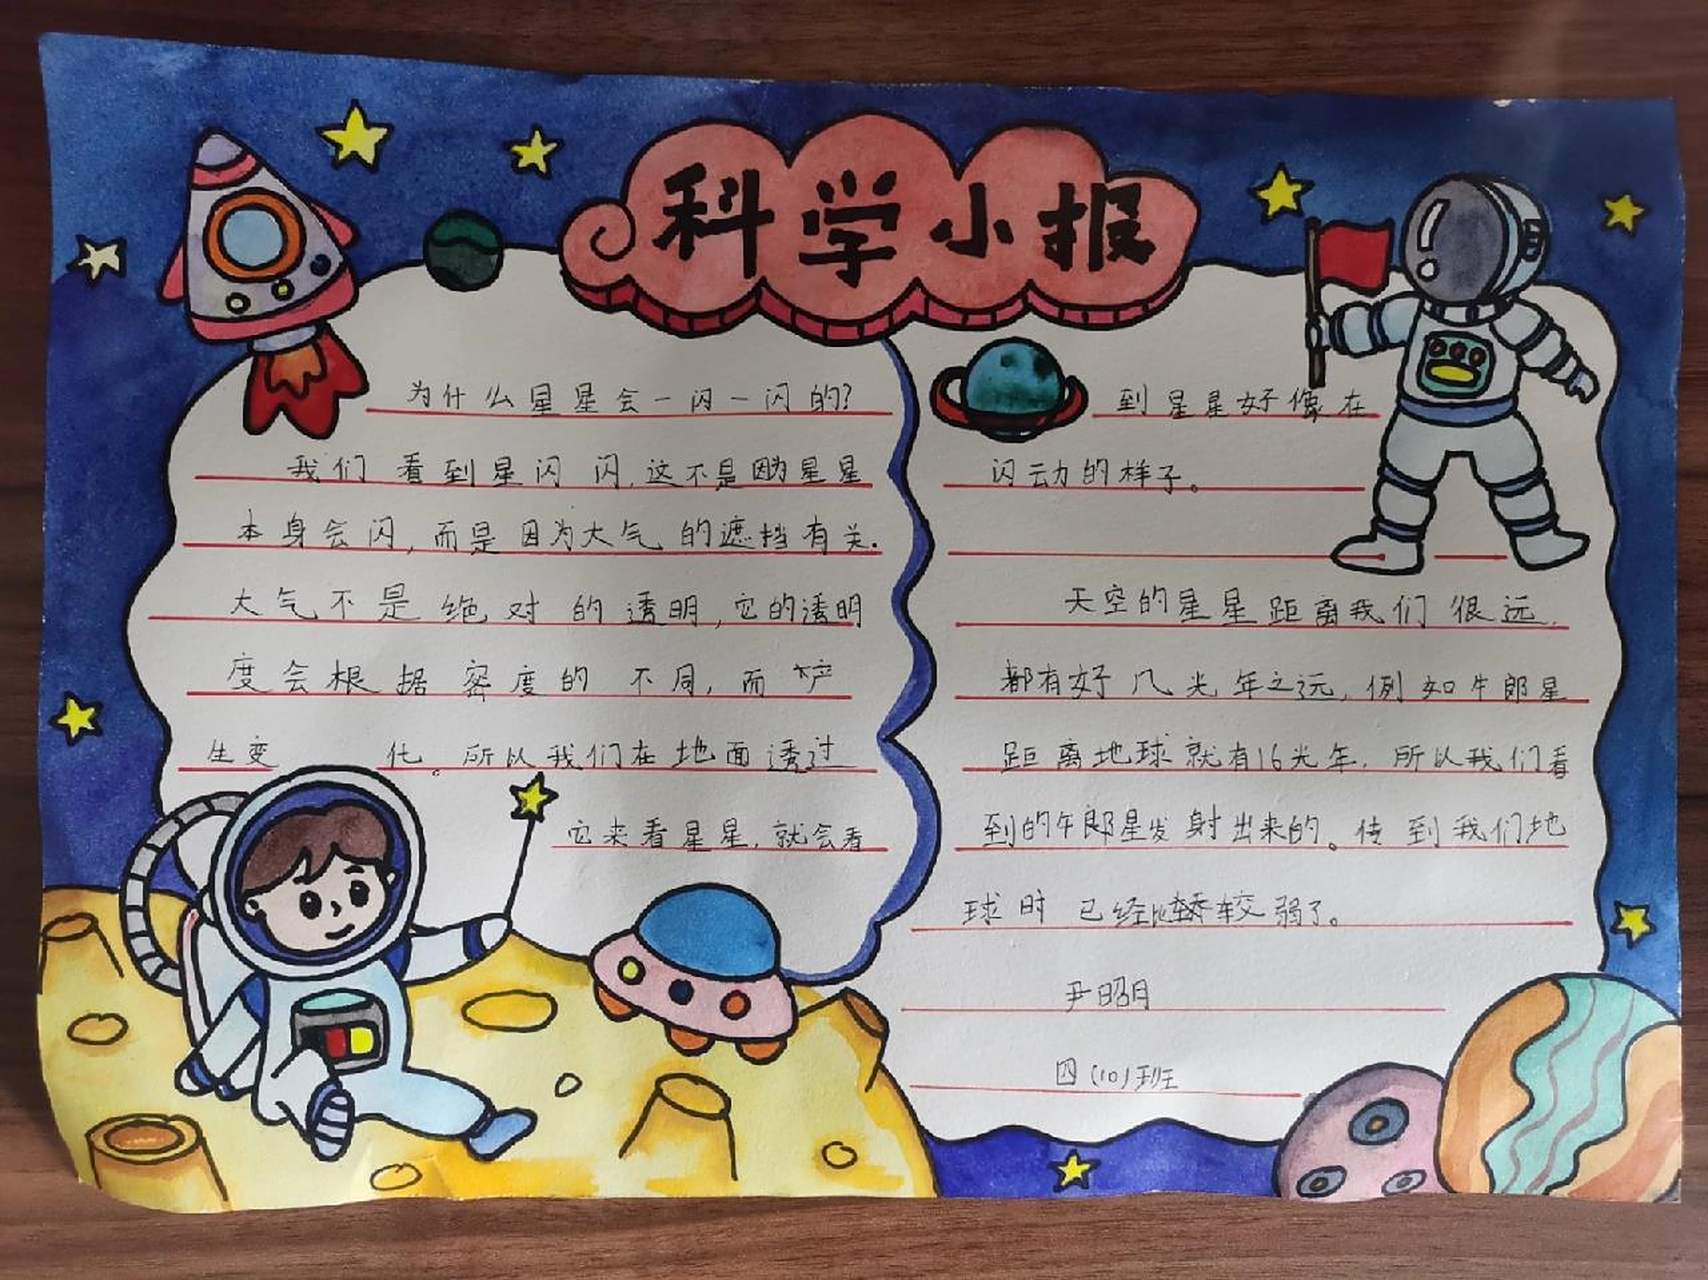 科学小报
为什么星星会一闪一闪的?
我们看到星闪闪,这不是因为星星
本身会闪,而是因为大气的遮挡有关.
大气不是绝对的透明,它的透明
度会根据密度的不同,而产
生变化。所以我们在地面透过
它来看星星,就会看
到星星好像在
闪动的样子。
天空的星星距离我们很远,
都有好几光年之远,例如牛郎星
距离地球就有16光年,所以我们看
到的牛郎星发射出来的。传到我们地
球时已经比较弱了。
尹昭月
四(10)班